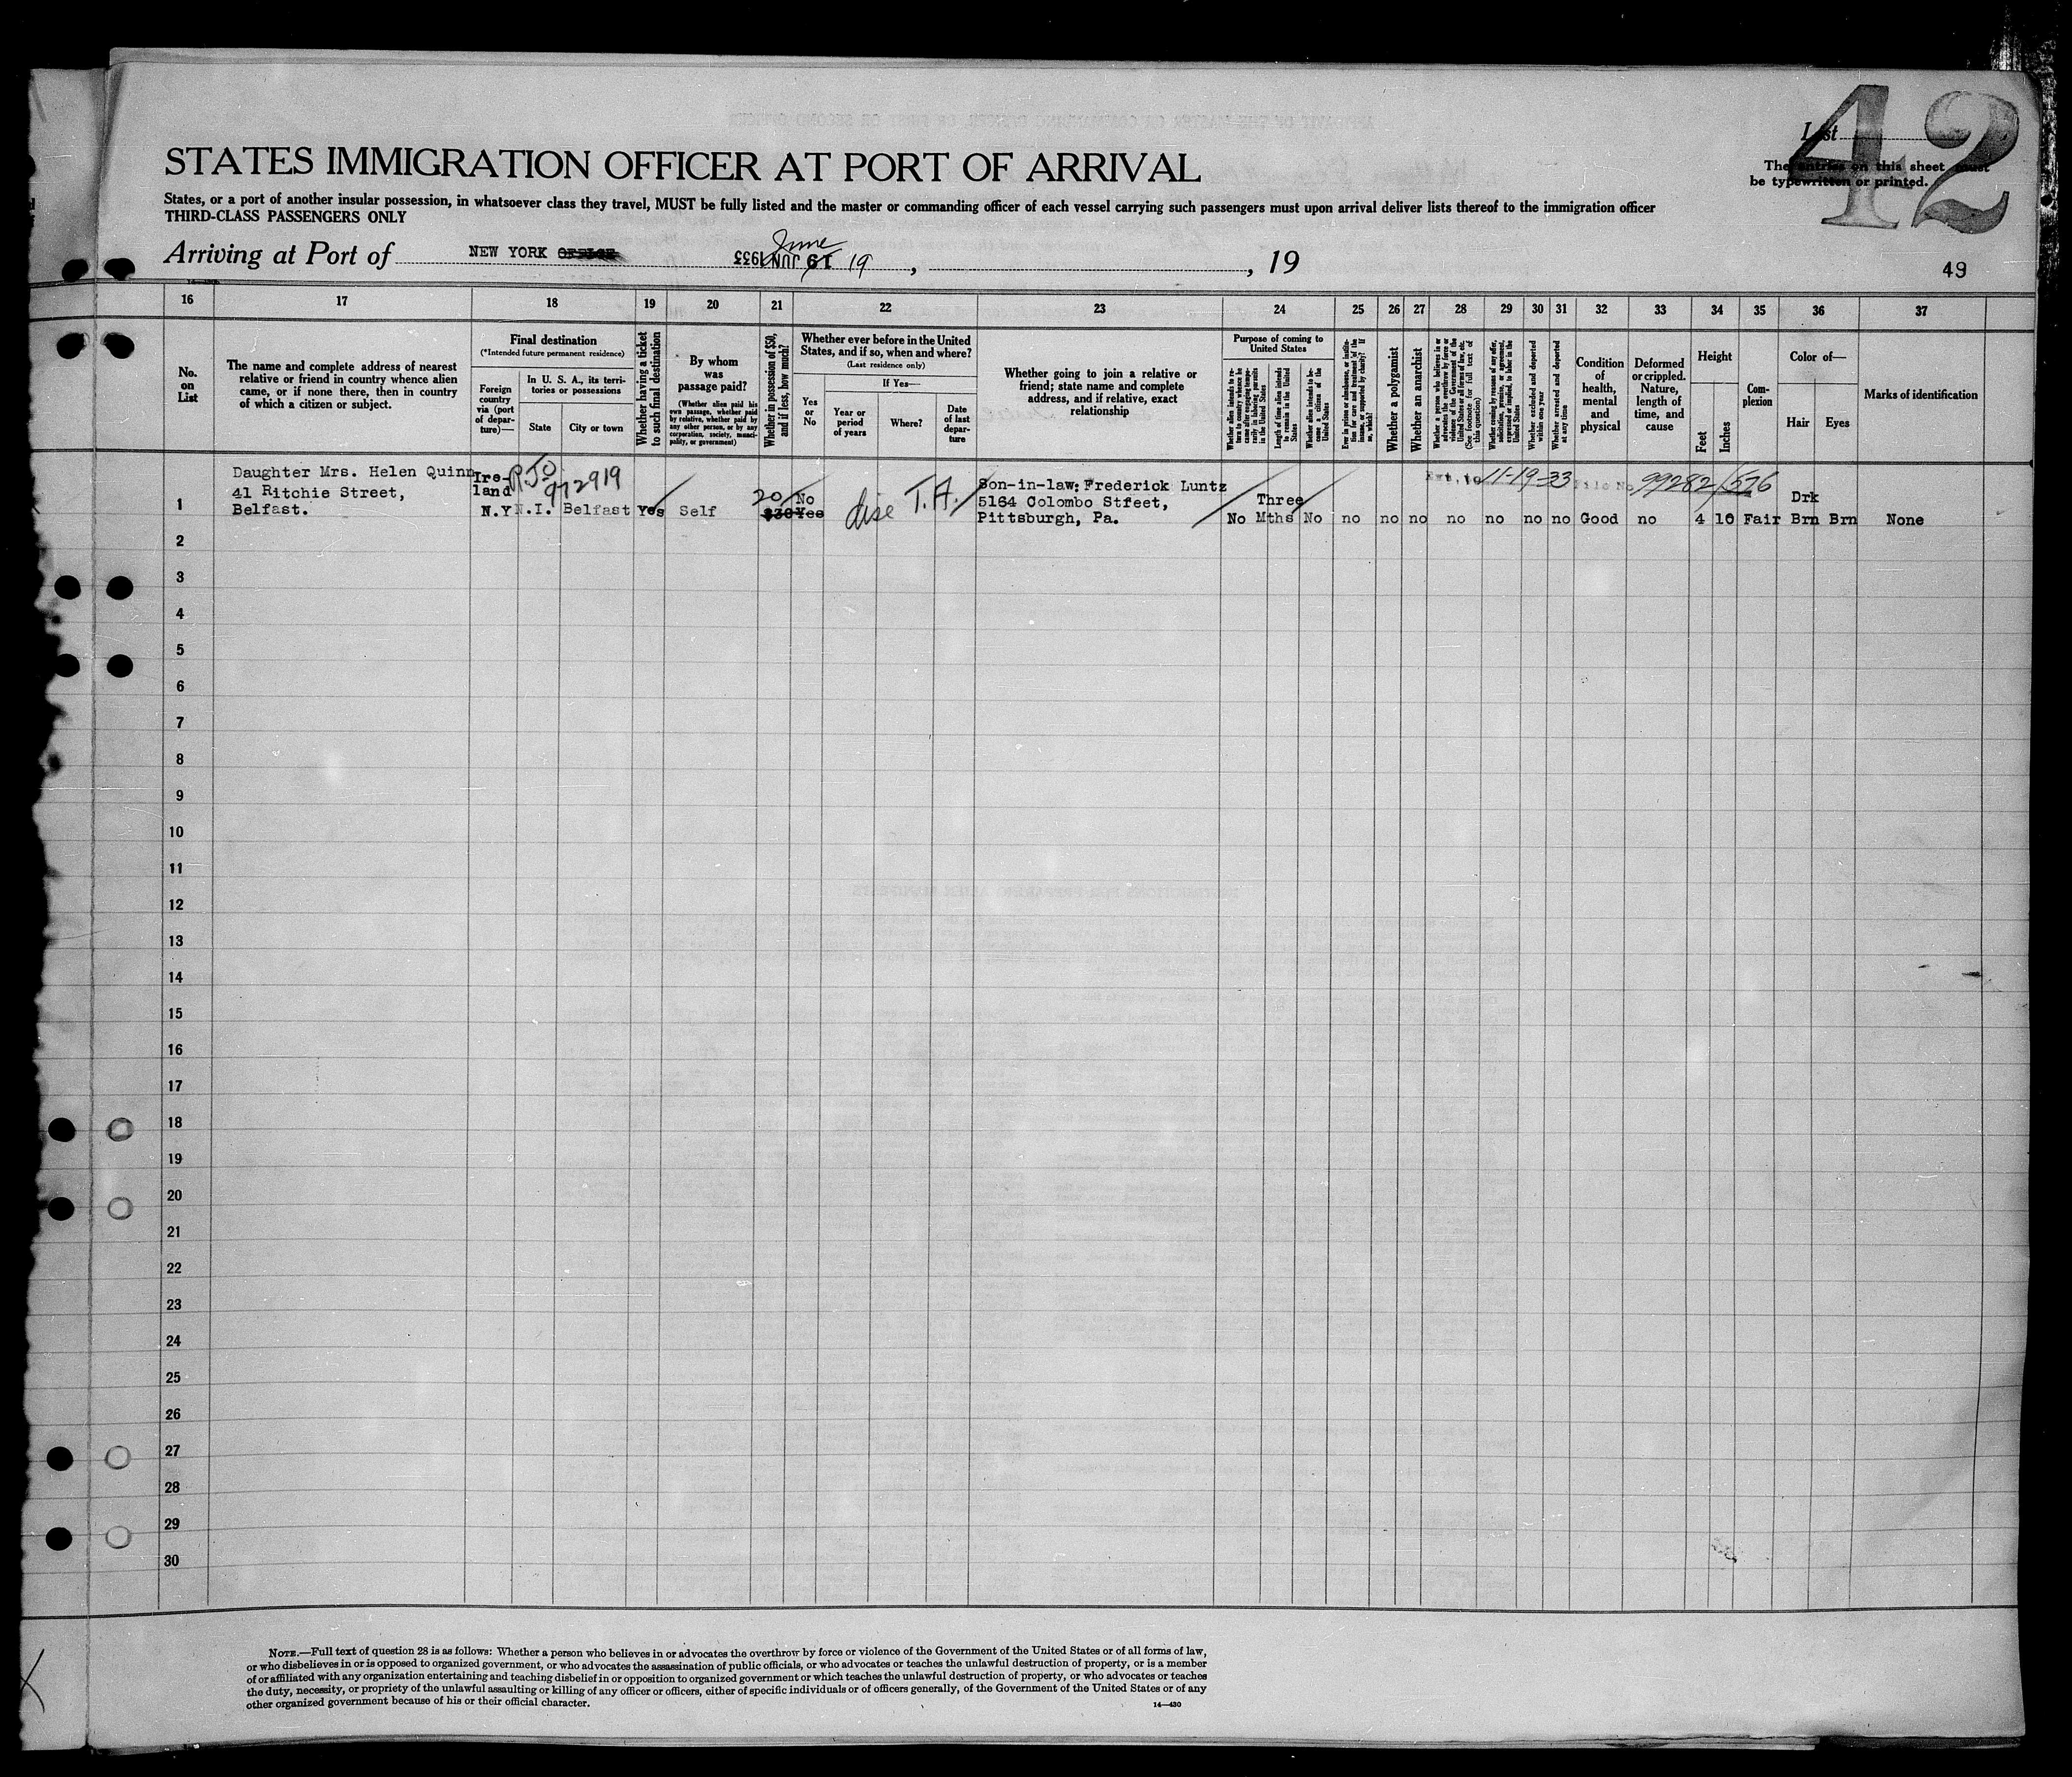 42
List
The entries on this sheet must
be typewritten or printed.
STATES IMMIGRATION OFFICER AT PORT OF ARRIVAL
States, or a port of another insular possession, in whatsoever class they travel, MUST be fully listed and the master or commanding officer of each vessel carrying such passengers must upon arrival deliver lists thereof to the immigration officer
THIRD-CLASS PASSENGERS ONLY
Arriving at Port of NEW YORK June 19, , 19
49
16 17 18 19 20 21 22 23 24 25 26 27 28 29 30 31 32 33 34 35 36 37
No.
on
List
The name and complete address of nearest
relative or friend in country whence alien
came, or if none there, then in country
of which a citizen or subject.
Final destination
(*Intended future permanent residence)
Foreign
country
via (port
of depar-
ture)—
In U. S. A., its terri-
tories or possessions
State
City or town
Whether having a ticket
to such final destination
By whom
was
passage paid?
(Whether alien paid his
own passage, whether paid
by relative, whether paid by
any other person, or by any
corporation, society, munici-
pality, or government)
Whether in possession of $50,
and if less, how much?
Whether ever before in the United
States, and if so, when and where?
(Last residence only)
Yes
or
No
If Yes—
Year or
period
of years
Where?
Date
of last
depar-
ture
Whether going to join a relative or
friend; state name and complete
address, and if relative, exact
relationship
Purpose of coming to
United States
Whether alien intends to re-
turn to country whence he
came after engaging tempo-
rarily in laboring pursuits
in the United States
Length of time alien intends
to remain in the United
States
Whether alien intends to be-
come a citizen of the
United States
Ever in prison or almshouse, or institu-
tion for care and treatment of the
insane, or supported by charity? If
so, which?
Whether a polygamist
Whether an anarchist
Whether a person who believes in or
advocates the overthrow by force or
violence of the Government of the
United States or all forms of law, etc.
(See footnote for full text of
this question)
Whether coming by reasons of any offer,
solicitation, promise, or agreement,
expressed or implied, to labor in the
United States
Whether excluded and deported
within one year
Whether arrested and deported
at any time
Condition
of
health,
mental
and
physical
Deformed
or crippled.
Nature,
length of
time, and
cause
Height
Feet
Inches
Com-
plexion
Color of—
Hair
Eyes
Marks of identification
Daughter Mrs. Helen Quinn
41 Ritchie Street,
Belfast.
Ire-
land
972919
N.Y N.I. Belfast Yes Self
20 No
$30 Yes
T.A.
Son-in-law: Frederick Luntz
5164 Colombo Stfeet,
Pittsburgh, Pa.
Ext. to 11-19-33 File No. 99282/576
Three Drk
No Mths No no no no no no no no Good no 4 10 Fair Brn Brn None
1
2
3
4
5
6
7
8
9
10
11
12
13
14
15
16
17
18
19
20
21
22
23
24
25
26
27
28
29
30
NOTE.—Full text of question 28 is as follows: Whether a person who believes in or advocates the overthrow by force or violence of the Government of the United States or of all forms of law,
or who disbelieves in or is opposed to organized government, or who advocates the assassination of public officials, or who advocates or teaches the unlawful destruction of property, or is a member
of or affiliated with any organization entertaining and teaching disbelief in or opposition to organized government or which teaches the unlawful destruction of property, or who advocates or teaches
the duty, necessity, or propriety of the unlawful assaulting or killing of any officer or officers, either of specific individuals or of officers generally, of the Government of the United States or of any
other organized government because of his or their official character.
14—430